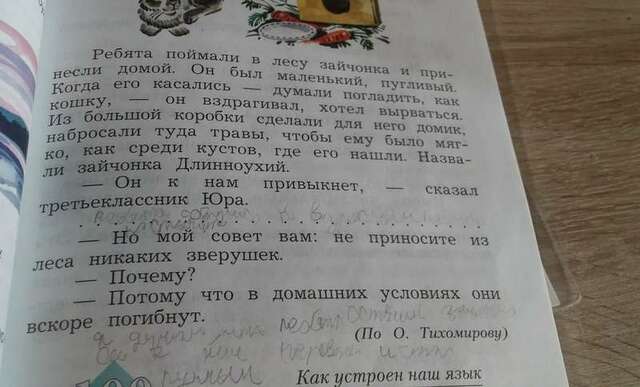 Ребята поймали в лесу зайчонка и при-
несли домой. Он был маленький, пугливый.
Когда его касались — думали погладить, как
кошку, — он вздрагивал, хотел вырваться.
Из большой коробки сделали для него домик,
набросали туда травы, чтобы ему было мяг-
ко, как среди кустов, где его нашли. Назва-
ли зайчонка Длинноухий.
— Он к нам привыкнет, — сказал
третьеклассник Юра.
. . . . . . . . . . . . . . . . . . . . . . . . . . . . . .
— Но мой совет вам: не приносите из
леса никаких зверушек.
— Почему?
— Потому что в домашних условиях они
вскоре погибнут.
(По О. Тихомирову)
Как устроен наш язык